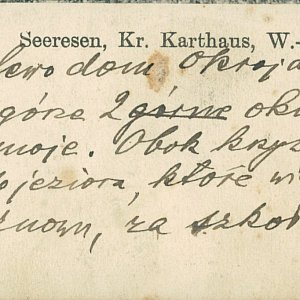 Seeresen, Kr. Karthaus, W.-
lewo dom Okroja
górze 2 górne okn
moje. Obok krzy
jeziora, które wi
znown, za szkoł